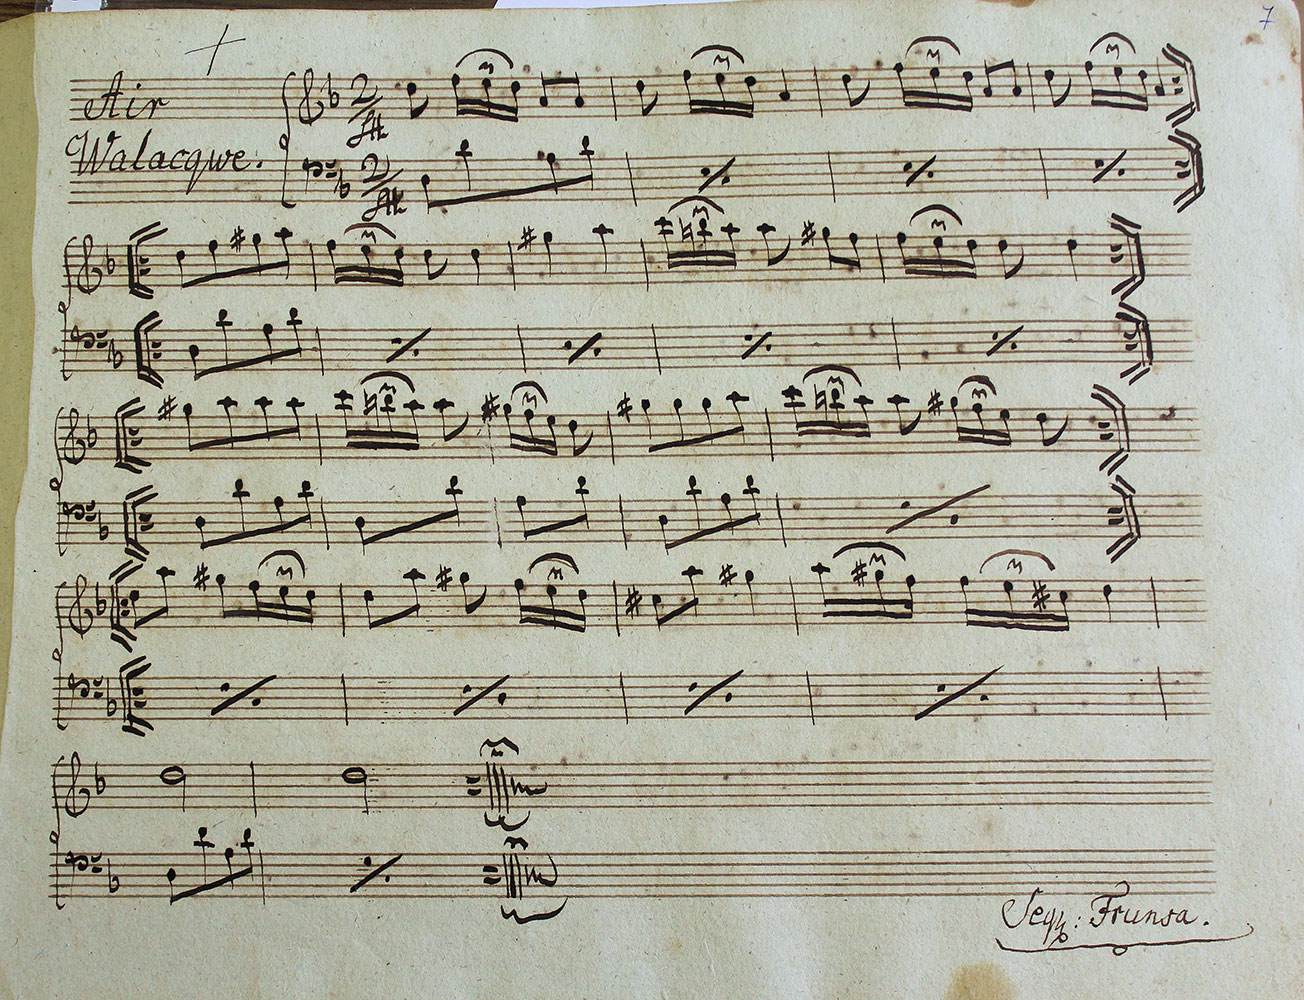 7
Air
Walacqwe:
2/4
2/4
Seq: Frunsa.